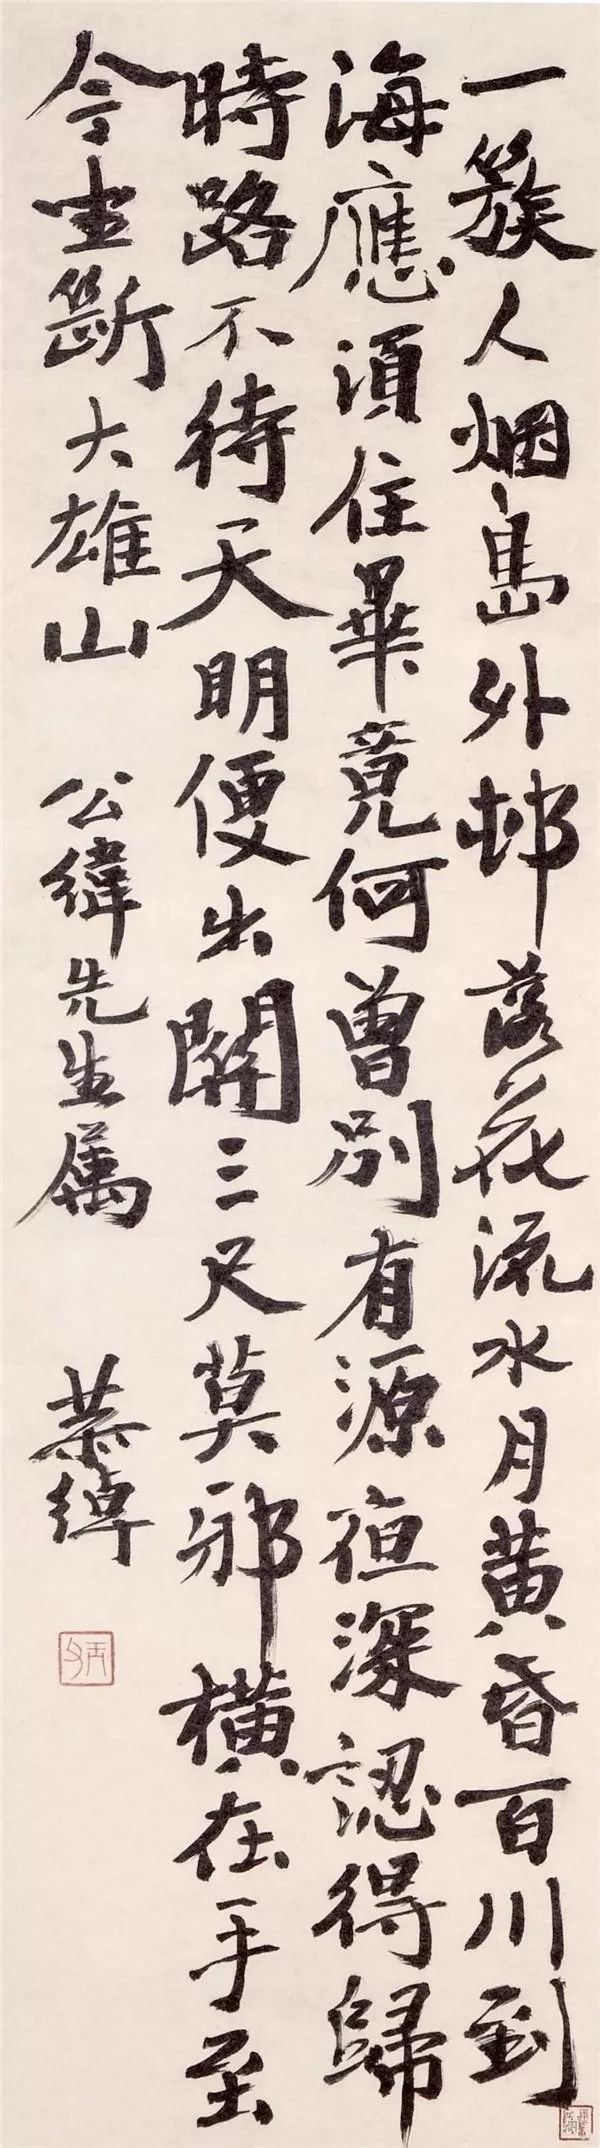 一簇人烟島外邨落花流水月黄昏百川到
海應須住畢竟何曾別有源夜深認得歸
時路不待天明便出關三尺莫邪橫在手至
今坐斷大雄山
公緯先生属
慕韓